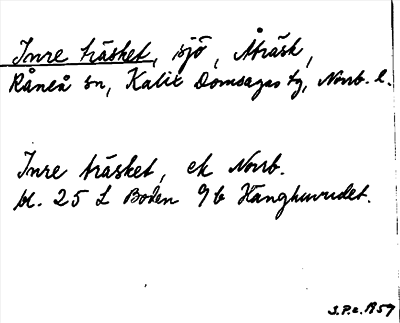 Inre träsket, sjö, Åträsk,
Råneå sn, Kalix Domsagas tg, Norrb. l.
Inre träsket, ek Norrb.
bl. 25 L Boden 9b Hanghuvudet.
S.P.c. 1959